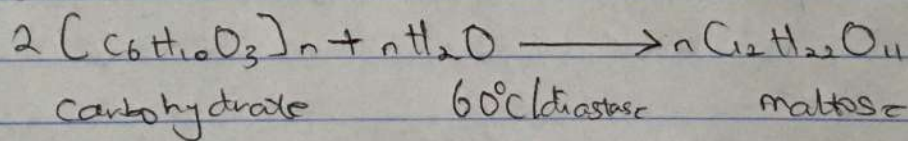 2 [C₆H₁₀O₃]n + nH₂O ⟶ nC₁₂H₂₂O₁₁
carbohydrate 60°C/diastase maltose